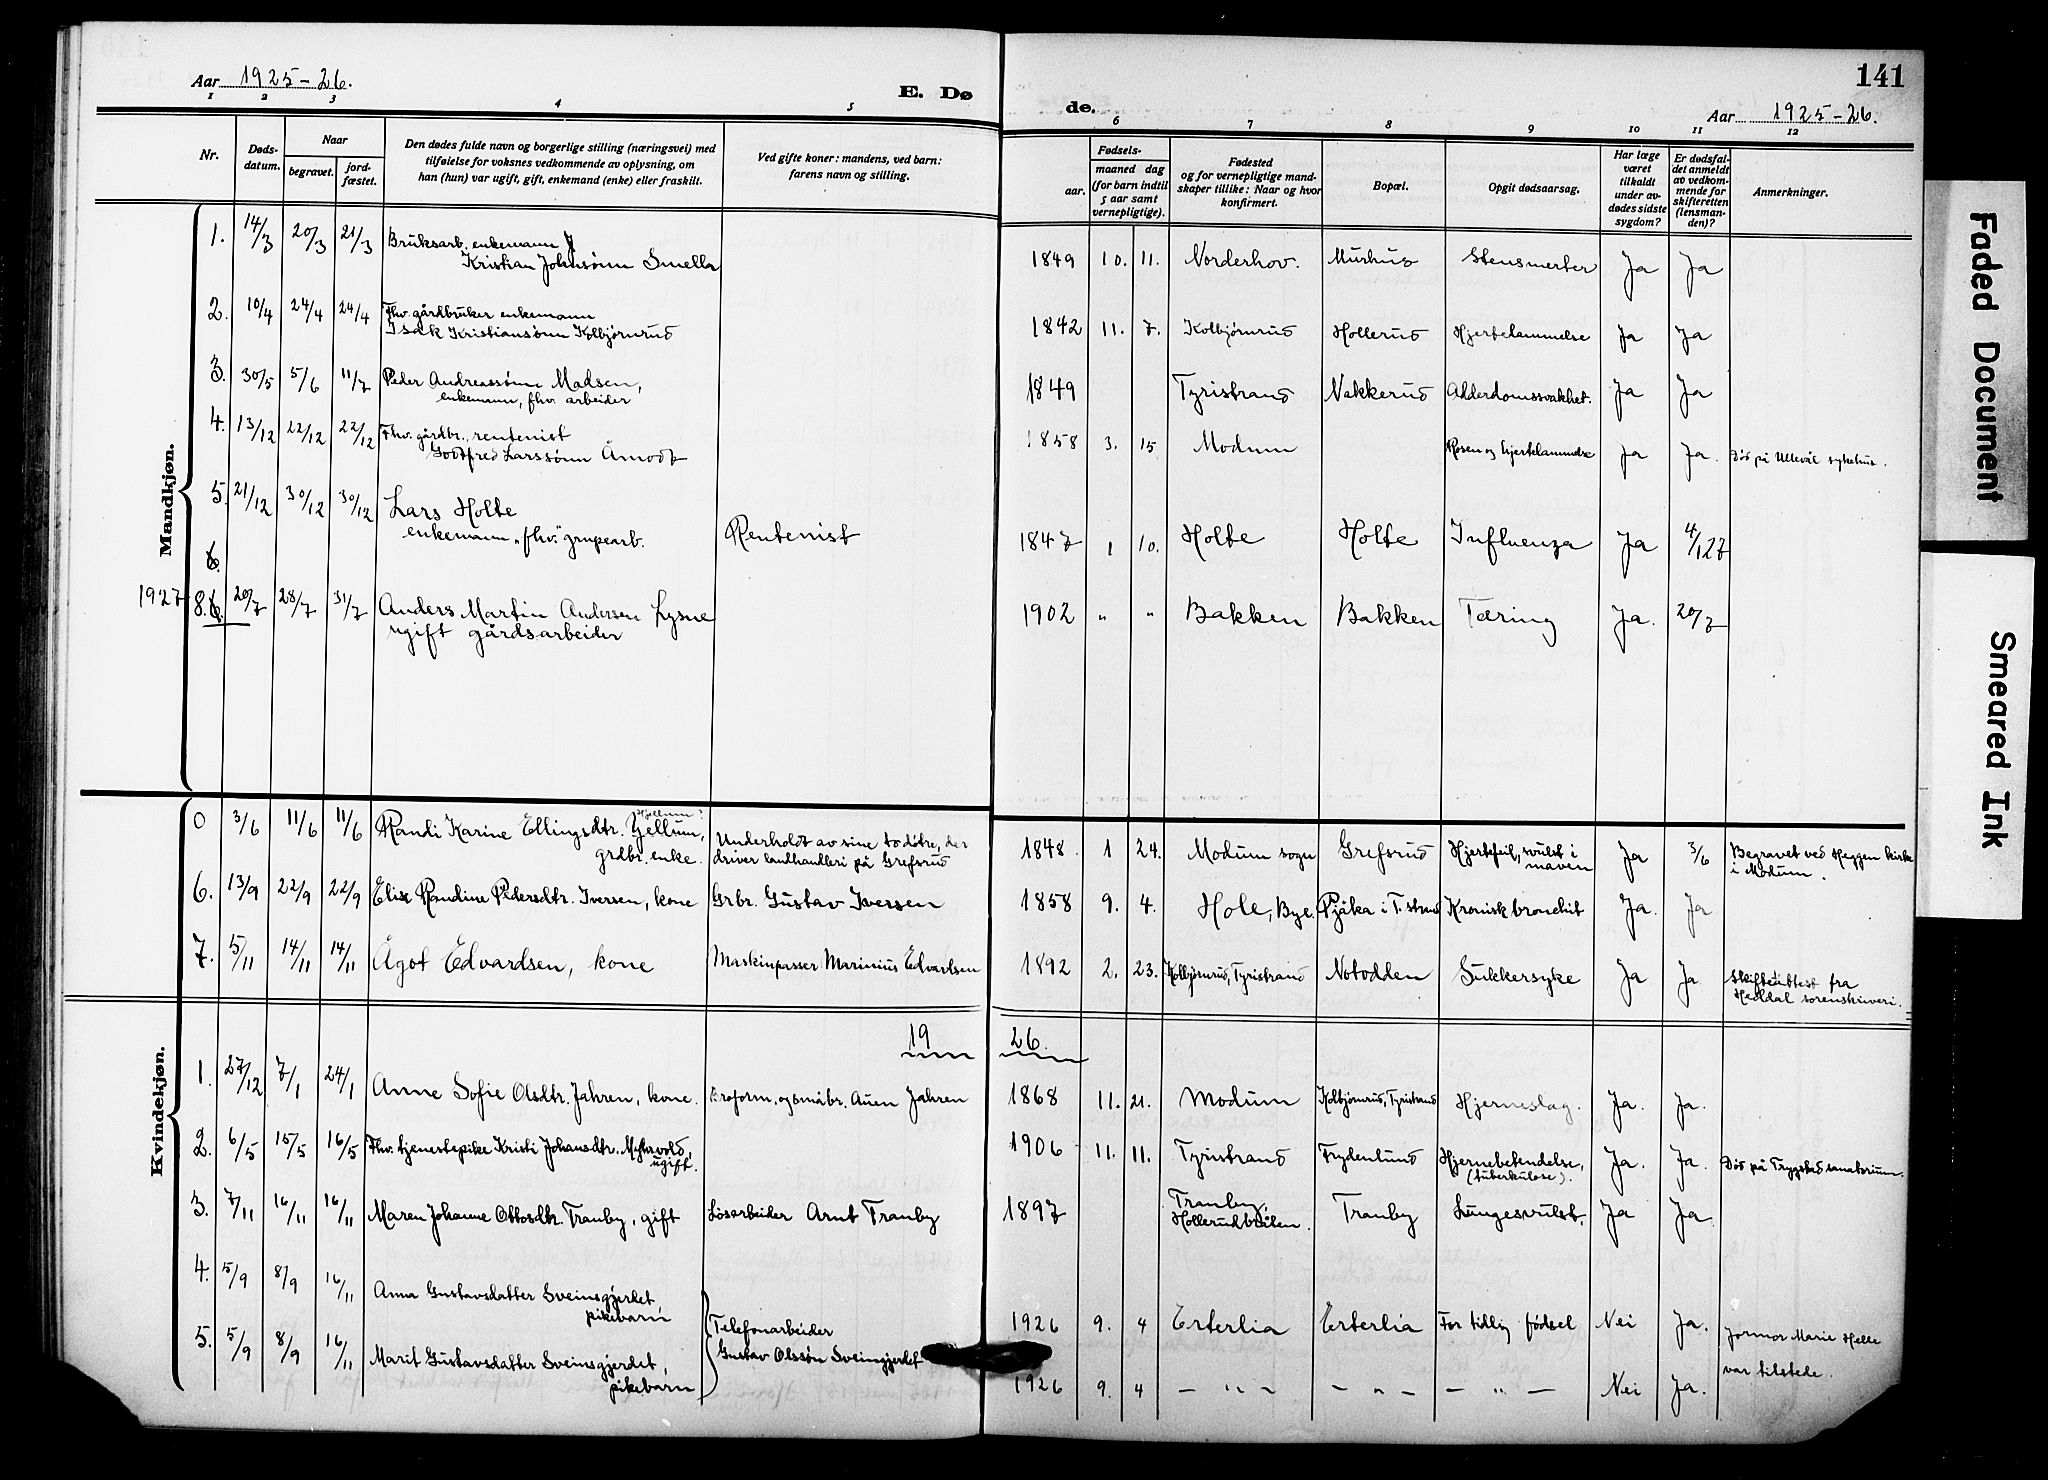 Aar 1925-26.
E. Dø
de.
141
Aar 1925-26.
1 2 3 4 5 6 7 8 9 10 11 12
Nr.
Døds-
datum.
Naar
begravet.
jord-
fæstet.
Den dødes fulde navn og borgerlige stilling (næringsvei) med
tilføielse for voksnes vedkommende av oplysning, om
han (hun) var ugift, gift, enkemand (enke) eller fraskilt.
Ved gifte koner: mandens, ved barn:
farens navn og stilling.
Fødsels-
aar.
maaned dag
(for barn indtil
5 aar samt
vernepligtige).
Fødested
og for vernepligtige mand-
skaper tillike: Naar og hvor
konfirmert.
Bopæl.
Opgit dødsaarsag.
Har læge
været
tilkaldt
under av-
dødes sidste
sygdom?
Er dødsfal-
det anmeldt
av vedkom-
mende for
skifteretten
(lensman-
den)?
Anmerkninger.
Mandkjøn.
1. 14/3 20/3 21/3 Bruksarb. enkemann
Kristian Johnsønn Smella 1849 10. 11. Norderhov. Murhus Stensmerter Ja Ja
2. 10/4 24/4 24/4 Fhv. gårdbruker enkemann
Isak Kristiansønn Kolbjørnrud 1842 11. 7. Kolbjørnrud Hollerud Hjertelammelse Ja Ja
3. 30/5 5/6 11/7 Peder Andreassønn Madsen,
enkemann, fhv. arbeider 1849 Tyristrand Nakkerud Alderdomssvakhet. Ja Ja
4. 13/12 22/12 22/12 Fhv. gårdbr., rentenist
Godtfred Larssønn Åmodt 1858 3. 15 Modum Rosen og hjertelammelse Ja Ja. Død på Ullevål sykehus.
5. 21/12 30/12 30/12 Lars Holte
enkemann, fhv. grupearb. Rentenist 1847 1 10. Holte Holte Influenza Ja 4/1 27
6.
1927 8. 6. 20/7 28/7 31/7 Anders Martin Andersen Lysne
ugift gårdsarbeider 1902 " " Bakken Bakken Tæring Ja. 20/7
Kvindekjøn.
0 3/6 11/6 11/6 Randi Karine Ellingsdtr. Gjellum,
Hjellum?
grdbr. enke. Underholdt av sine to døtre, der
driver landhandleri på Grefsrud 1848 1 24. Modum sogn Grefsrud Hjertefeil, svulst i
maven Ja 3/6 Begravet ved Heggen kirke
i Modum.
6. 13/9 22/9 22/9 Elise Randine Pedersdtr. Iversen, kone Grbr. Gustav Iversen 1858 9. 4. Hole, Bye. Pjåka i T.strand Kronisk bronchit Ja. Ja
7. 5/11 14/11 14/11 Ågot Edvardsen, kone Maskinpasser Marinius Edvardsen 1892 2. 23. Kolbjørnrud, Tyristrand Notodden Sukkersyke Ja Ja Skifteattest fra
Heddal sorenskriveri.
19 26.
1. 27/12 7/1 24/1 Anne Sofie Olsdtr. Jahren, kone. Broform. og småbr. Auen Jahren 1868 11. 21. Modum Kolbjørnrud, Tyristrand Hjerneslag. Ja. Ja.
2. 6/5 15/5 16/5 Fhv. tjenestepike Kristi Johansdtr. Myhrvold,
ugift. 1906 11. 11. Tyristrand Frydenlund Hjernebetendelse,
(tuberkuløse). Ja. Ja. Død på Trygstad sanatorium.
3. 7/11 16/11 16/11 Maren Johanne Ottosdtr. Tranby, gift Løsarbeider Arnt Tranby 1897 Tranby,
Hollerudbråten. Tranby Lungesvulst. Ja Ja.
4. 5/9 8/9 16/11 Anna Gustavsdatter Sveinsgjerdet,
pikebarn Telefonarbeider
Gustav Olssøn Sveingjerdet 1926 9. 4 Erterlia Erterlia For tidlig fødsel Nei Ja. Jormor Marie Helle
var tilstede.
5. 5/9 8/9 16/11 Marit Gustavsdatter Sveinsgjerdet,
pikebarn 1926 9. 4 — " — — " — — " — Nei Ja.
Faded Document
Smeared Ink